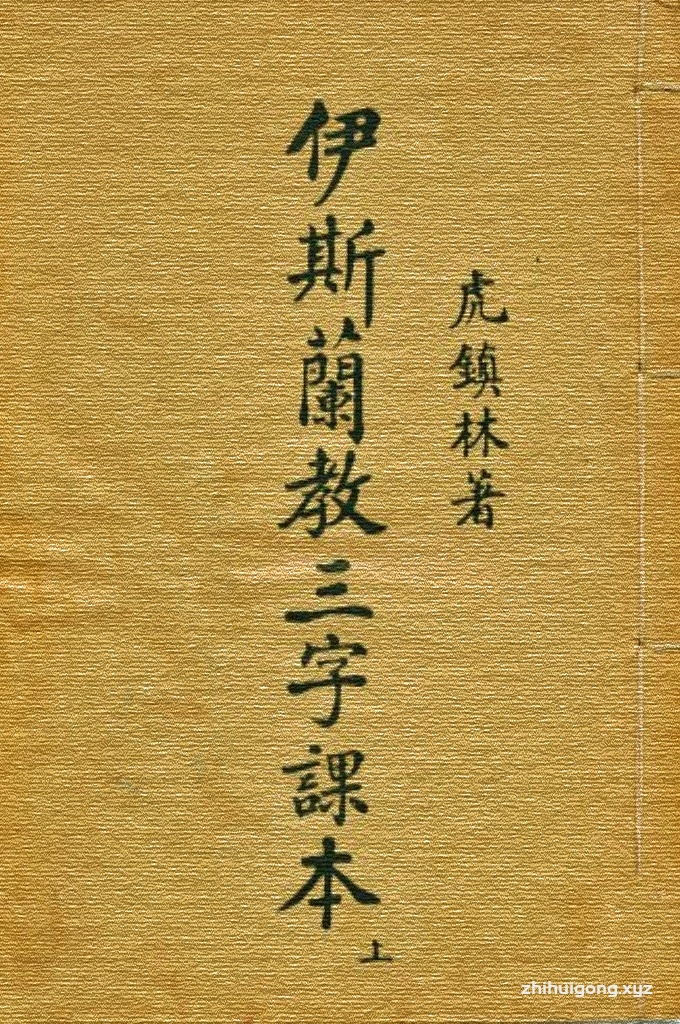 虎鎮林著
伊斯蘭教三字課本
上
zhihuigong.xyz